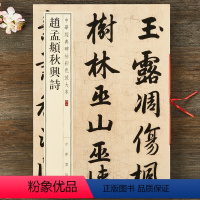 玉露凋傷楓
樹林巫山巫峽
中華經典碑帖彩色放大本
趙孟頫秋興詩
粉象优品